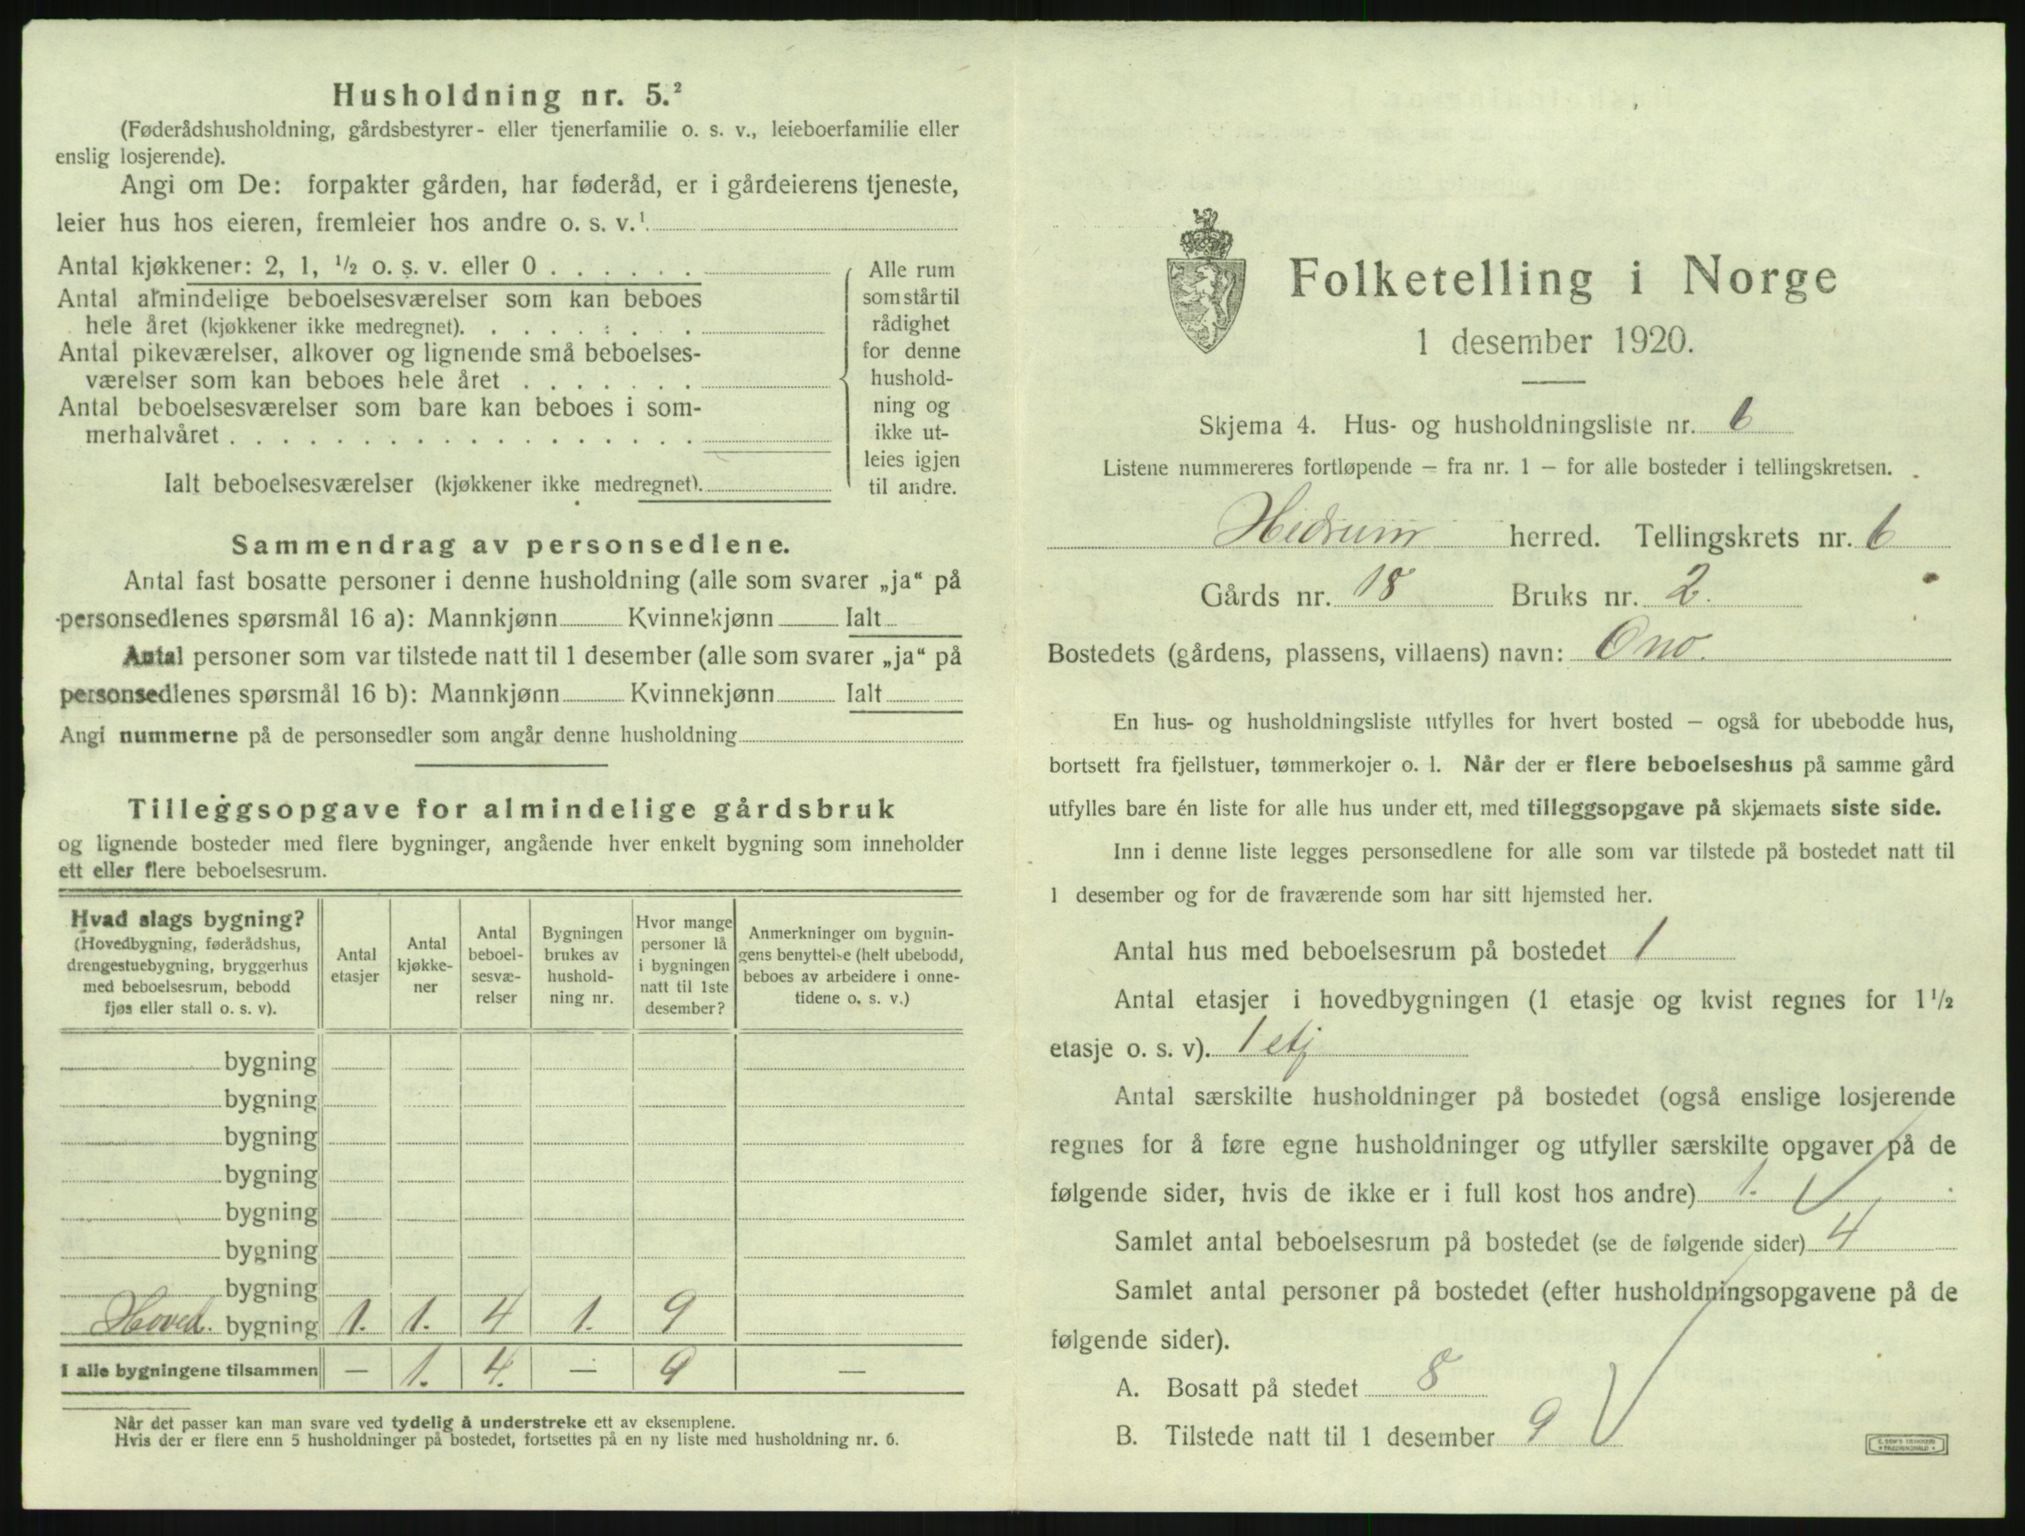 Husholdning nr. 5.²
(Føderådshusholdning, gårdsbestyrer- eller tjenerfamilie o. s. v., leieboerfamilie eller
enslig losjerende).
Angi om De: forpakter gården, har føderåd, er i gårdeierens tjeneste,
leier hus hos eieren, fremleier hos andre o. s. v.¹
Antal kjøkkener: 2, 1, ½ o. s. v. eller 0 . . . . . .
Antal almindelige beboelsesværelser som kan beboes
hele året (kjøkkener ikke medregnet). . . . . . . . .
Antal pikeværelser, alkover og lignende små beboelses-
værelser som kan beboes hele året . . . . . . .
Antal beboelsesværelser som bare kan beboes i som-
merhalvåret . . . . . . . . . . . . . . . . . .
Ialt beboelsesværelser (kjøkkener ikke medregnet).
Alle rum
som står til
rådighet
for denne
hushold-
ning og
ikke ut-
leies igjen
til andre.
Sammendrag av personsedlene.
Antal fast bosatte personer i denne husholdning (alle som svarer „ja“ på
personsedlenes spørsmål 16 a): Mannkjønn Kvinnekjønn Ialt
Antal personer som var tilstede natt til 1 desember (alle som svarer „ja“ på
personsedlenes spørsmål 16 b): Mannkjønn Kvinnekjønn Ialt
Angi nummerne på de personsedler som angår denne husholdning
Tilleggsopgave for almindelige gårdsbruk
og lignende bosteder med flere bygninger, angående hver enkelt bygning som inneholder
ett eller flere beboelsesrum.
Hvad slags bygning?
(Hovedbygning, føderådshus,
drengestuebygning, bryggerhus
med beboelsesrum, bebodd
fjøs eller stall o. s. v).
Antal
etasjer
Antal
kjøkke-
ner
Antal
beboel-
sesvæ-
relser
Bygningen
brukes av
hushold-
ning nr.
Hvor mange
personer lå
i bygningen
natt til 1ste
desember?
Anmerkninger om bygnin-
gens benyttelse (helt ubebodd,
beboes av arbeidere i onne-
tidene o. s. v.)
bygning
bygning
bygning
bygning
bygning
bygning
bygning
Hoved. bygning 1. 1. 4 1. 9
I alle bygningene tilsammen — 1. 4. — 9 —
Når det passer kan man svare ved tydelig å understreke ett av eksemplene.
Hvis der er flere enn 5 husholdninger på bostedet, fortsettes på en ny liste med husholdning nr. 6.
Folketelling i Norge
1 desember 1920.
Skjema 4. Hus- og husholdningsliste nr. 6
Listene nummereres fortløpende — fra nr. 1 — for alle bosteder i tellingskretsen.
Hedrum herred. Tellingskrets nr. 6
Gårds nr. 18 Bruks nr. 2.
Bostedets (gårdens, plassens, villaens) navn: Ono.
En hus- og husholdningsliste utfylles for hvert bosted — også for ubebodde hus,
bortsett fra fjellstuer, tømmerkojer o. l. Når der er flere beboelseshus på samme gård
utfylles bare én liste for alle hus under ett, med tilleggsopgave på skjemaets siste side.
Inn i denne liste legges personsedlene for alle som var tilstede på bostedet natt til
1 desember og for de fraværende som har sitt hjemsted her.
Antal hus med beboelsesrum på bostedet 1
Antal etasjer i hovedbygningen (1 etasje og kvist regnes for 1½
etasje o. s. v). 1 etj
Antal særskilte husholdninger på bostedet (også enslige losjerende
regnes for å føre egne husholdninger og utfyller særskilte opgaver på de
følgende sider, hvis de ikke er i full kost hos andre) 1.
Samlet antal beboelsesrum på bostedet (se de følgende sider) 4
Samlet antal personer på bostedet (efter husholdningsopgavene på de
følgende sider).
A. Bosatt på stedet 8
B. Tilstede natt til 1 desember 9